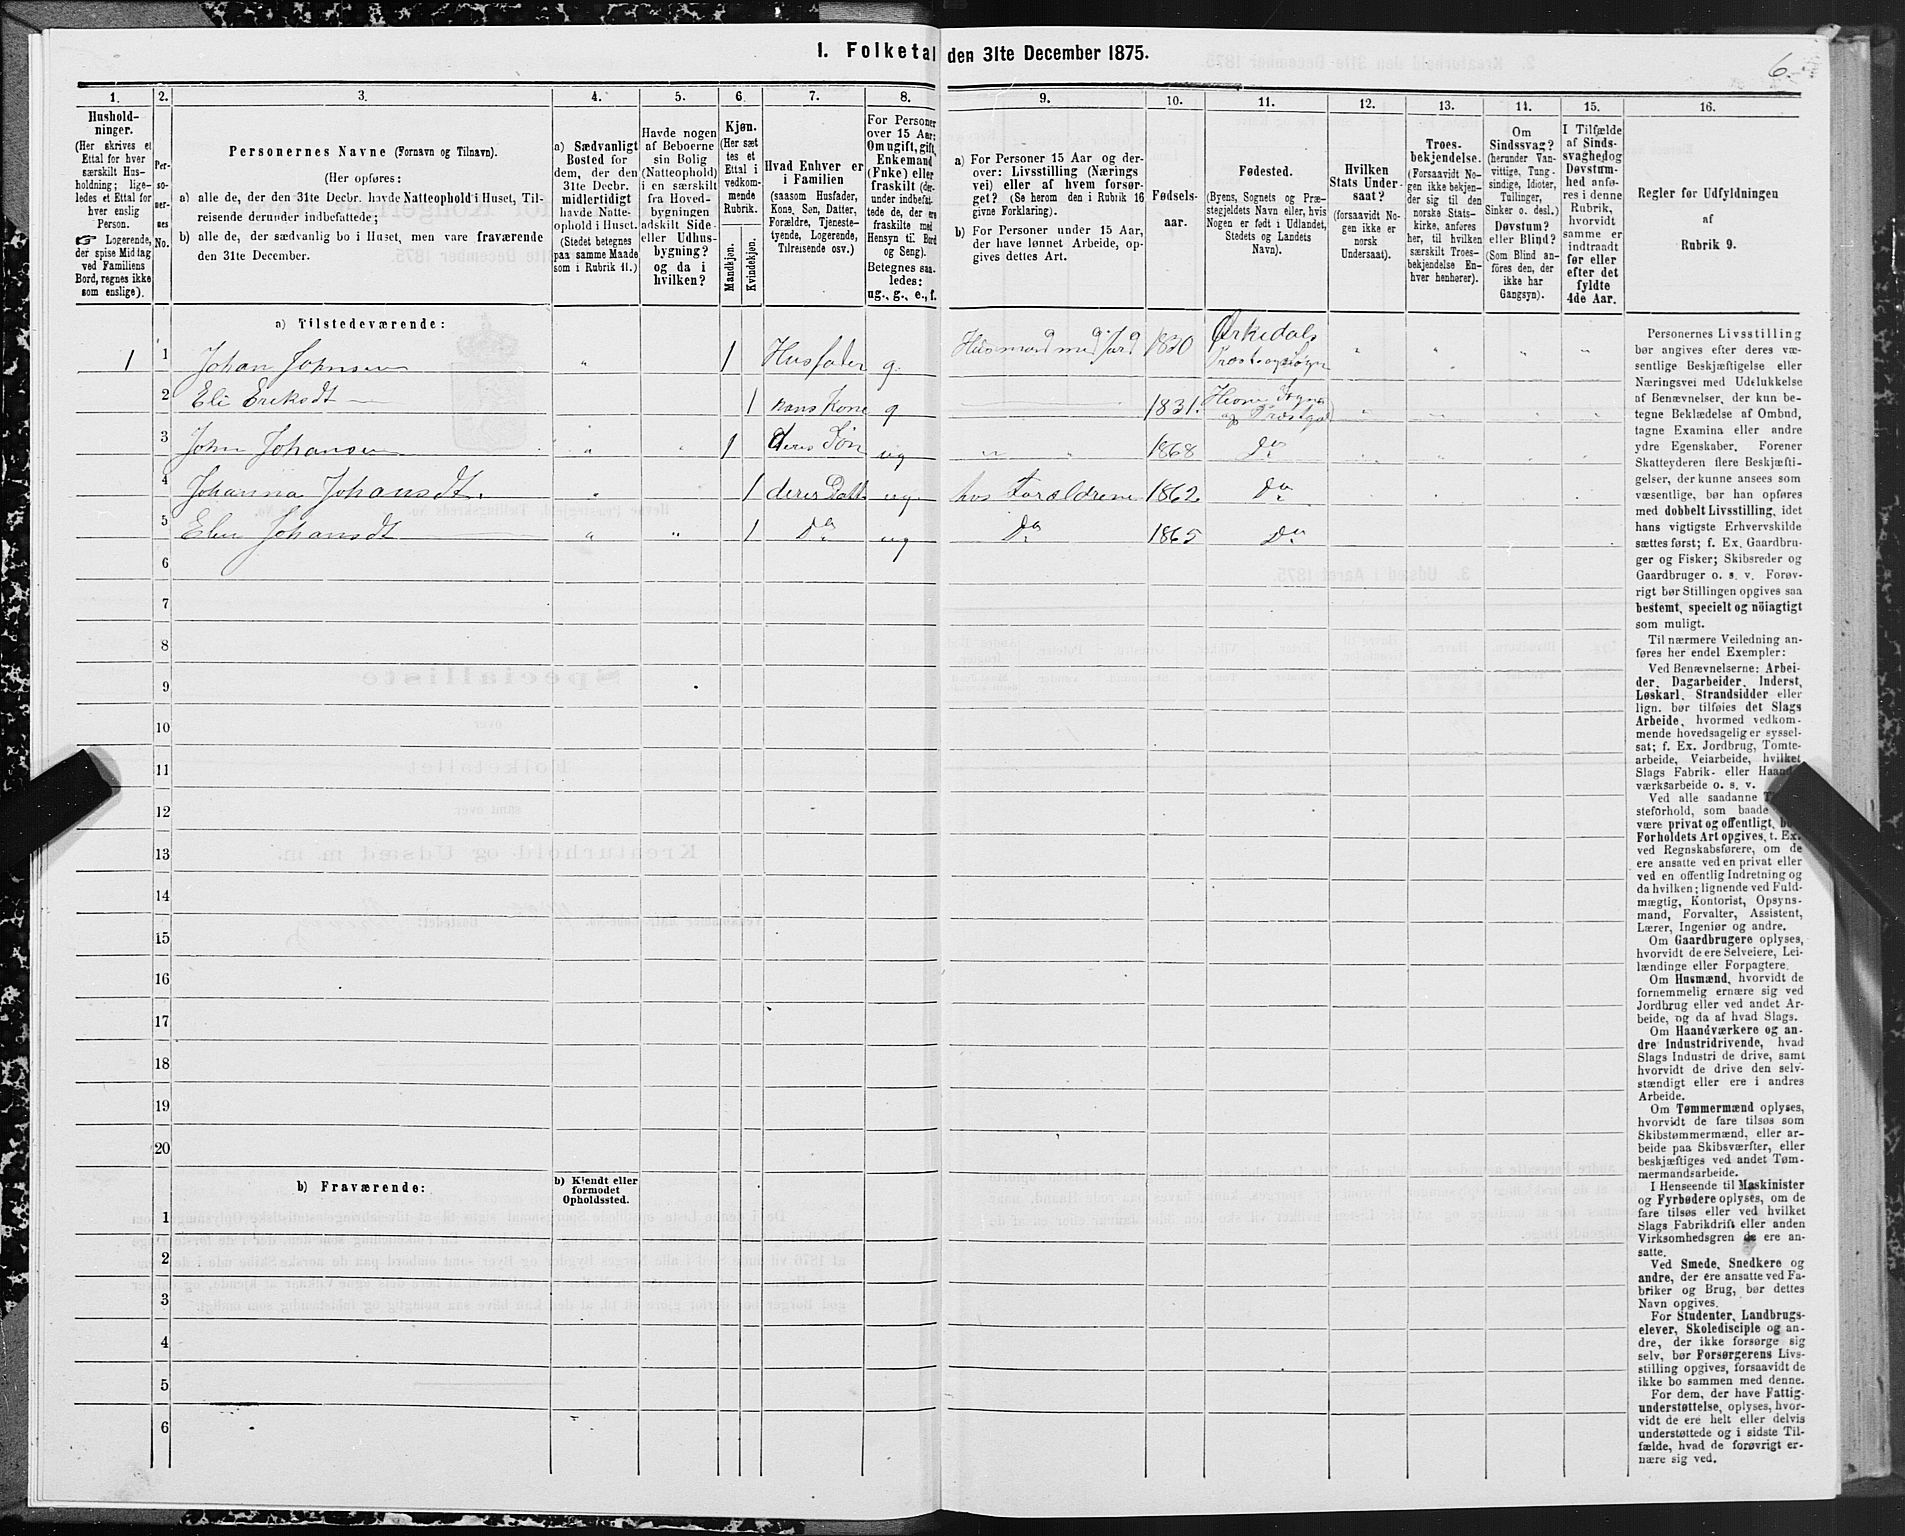 I. Folketal den 31te December 1875.
6.
1.
Hushold-
ninger.
(Her skrives et
Ettal for hver
særskilt Hus-
holdning; lige-
ledes et Ettal for
hver enslig
Person.
☞ Logerende,
der spise Middag
ved Familiens
Bord, regnes ikke
som enslige).
2.
Per-
so-
ner-
nes
No.
3.
Personernes Navne (Fornavn og Tilnavn).
(Her opføres:
a) alle de, der den 31te Decbr. havde Natteophold i Huset, Til-
reisende derunder indbefattede;
b) alle de, der sædvanlig bo i Huset, men vare fraværende
den 31te December.
4.
a) Sædvanligt
Bosted for
dem, der den
31te Decbr.
midlertidigt
havde Natte-
ophold i Huset.
(Stedet betegnes
paa samme Maade
som i Rubrik 11.)
5.
Havde nogen
af Beboerne
sin Bolig
(Natteophold)
i en særskilt
fra Hoved-
bygningen
adskilt Side-
eller Udhus-
bygning?
og da i
hvilken?
6.
Kjøn.
(Her sæt-
tes et
Ettal i
vedkom-
mende
Rubrik.
Mandkjøn.
Kvindekjøn.
7.
Hvad Enhver er
i Familien
(saasom Husfader,
Kone, Søn, Datter,
Forældre, Tjeneste-
tyende, Logerende,
Tilreisende osv.)
8.
For Personer
over 15 Aar:
Om ugift, gift,
Enkemand
(Enke) eller
fraskilt (der-
under indbefat-
tede de, der ere
fraskilte med
Hensyn til Bord
og Seng).
Betegnes saa-
ledes:
ug., g., e., f.
9.
a) For Personer 15 Aar og der-
over: Livsstilling (Nærings
vei) eller af hvem forsør-
get? (Se herom den i Rubrik 16
givne Forklaring).
b) For Personer under 15 Aar,
der have lønnet Arbeide, op-
gives dettes Art.
10.
Fødsels-
aar.
11.
Fødested.
(Byens, Sognets og Præ-
stegjeldets Navn eller, hvis
Nogen er født i Udlandet,
Stedets og Landets
Navn).
12.
Hvilken
Stats Under-
saat?
(forsaavidt No-
gen ikke er
norsk
Undersaat).
13.
Troes-
bekjendelse.
(Forsaavidt No-
gen ikke bekjen-
der sig til den
norske Stats-
kirke, anføres
her, til hvilken
særskilt Troes-
bekjendelse En-
hver henhører).
14.
Om
Sindssvag?
(herunder Van-
vittige, Tung-
sindige, Idioter,
Tullinger,
Sinker o. desl.)
Døvstum?
eller Blind?
(Som Blind an-
føres den, der
ikke har
Gangsyn).
15.
I Tilfælde
af Sinds-
svaghed og
Døvstum-
hed anfø-
res i denne
Rubrik,
hvorvidt
samme er
indtraadt
før eller
efter det
fyldte
4de Aar.
16.
Regler for Udfyldningen
af
Rubrik 9.
a) Tilstedeværende:
1 1 Johan Johnsen " 1 Husfader g. Husmand med Jord 1830 Ørkedals Præstegj " " " "
2 Eli Eriksdt 1 hans Kone g 1831. Hevne Sogn og Præstegd " " " "
3 John Johansen " " 1 deres Søn ug " " 1868 Do " " " "
4 Johanna Johansdt. " 1 deres Datt. ug. hos Forældrene 1862. Do
5 Elen Johansdt " " 1 Do ug Do 1865 Do
6
7
8
9
10
11
12
13
14
15
16
17
18
19
20
b) Fraværende:
b) Kjendt eller
formodet
Opholdssted.
1
2
3
4
5
6
Personernes Livsstilling
bør angives efter deres væ-
sentlige Beskjæftigelse eller
Næringsvei med Udelukkelse
af Benævnelser, der kun be-
tegne Beklædelse af Ombud,
tagne Examina eller andre
ydre Egenskaber. Forener
Skatteyderen flere Beskjæfti-
gelser, der kunne ansees som
væsentlige, bør han opføres
med dobbelt Livsstilling, idet
hans vigtigste Erhvervskilde
sættes først; f. Ex. Gaardbru-
ger og Fisker; Skibsreder og
Gaardbruger o. s. v. Forøv-
rigt bør Stillingen opgives saa
bestemt, specielt og nöiagtigt
som muligt.
Til nærmere Veiledning an-
føres her endel Exempler:
Ved Benævnelserne: Arbei-
der, Dagarbeider, Inderst,
Løskarl, Strandsidder eller
lign. bør tilføies det Slags
Arbeide, hvormed vedkom-
mende hovedsagelig er syssel-
sat; f. Ex. Jordbrug, Tomte-
arbeide, Veiarbeide, hvilket
Slags Fabrik- eller Haand-
værksarbeide o. s. v.
Ved alle saadanne
steforhold, som baade
være privat og offentlig,
Forholdets Art opgives, t. Ex.
ved Regnskabsførere, om de
ere ansatte ved en privat eller
ved en offentlig Indretning og
da hvilken; lignende ved Fuld-
mægtig, Kontorist, Opsyns-
mand, Forvalter, Assistent,
Lærer, Ingeniør og andre.
Om Gaardbrugere oplyses,
hvorvidt de ere Selveiere, Lei-
lændinge eller Forpagtere.
Om Husmænd, hvorvidt de
fornemmelig ernære sig ved
Jordbrug eller ved andet Ar-
beide, og da af hvad Slags.
Om Haandværkere og an-
dre Industridrivende, hvad
Slags Industri de drive, samt
hvorvidt de drive den selv-
stændigt eller ere i andres
Arbeide.
Om Tømmermænd oplyses,
hvorvidt de fare tilsøs som
Skibstømmermænd, eller ar-
beide paa Skibsværfter, eller
beskjæftiges ved andet Tøm-
mermandsarbeide.
I Henseende til Maskinister
og Fyrbødere oplyses, om de
fare tilsøs eller ved hvilket
Slags Fabrikdrift eller anden
Virksomhedsgren de ere an-
satte.
Ved Smede, Snedkere og
andre, der ere ansatte ved Fa-
briker og Brug, bør dettes
Navn opgives.
For Studenter, Landbrugs-
elever, Skoledisciple og an-
dre, der ikke forsørge sig
selv, bør Forsørgerens Livs-
stilling opgives, forsaavidt de
ikke bo sammen med denne.
For dem, der have Fattig-
understøttelse, oplyses, hvor-
vidt de ere helt eller delvis
understøttede og i sidste Til-
fælde, hvad de forøvrigt er-
nære sig ved.